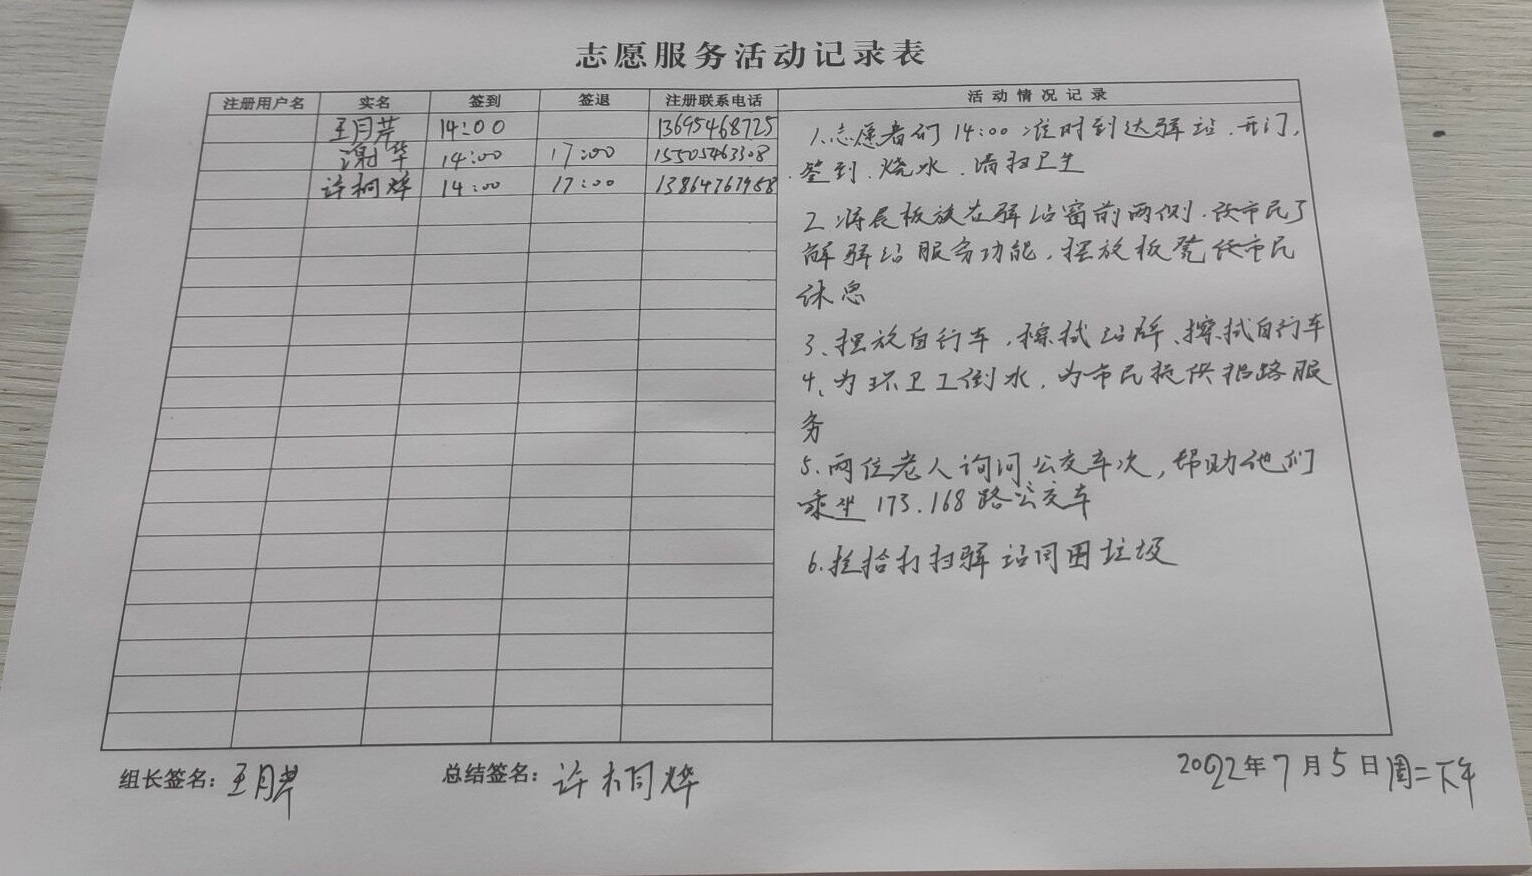 志愿服务活动记录表
注册用户名 实名 签到 签退 注册联系电话 活动情况记录
王月芹 14:00 13695468725
谢华 14:00 17:00 15505463308
许桐烨 14:00 17:00 13864767958
1.志愿者们14:00准时到达驿站、开门、
签到、烧水、清扫卫生
2.将展板放在驿站窗前两侧、供市民了
解驿站服务功能,摆放板凳供市民
休息
3、摆放自行车,擦拭站牌、擦拭自行车
4、为环卫工倒水,为市民提供指路服
务
5.两位老人询问公交车次,帮助他们
乘坐173.168路公交车
6.捡拾打扫驿站周围垃圾
组长签名:王月芹 总结签名:许桐烨 2022年7月5日周二下午